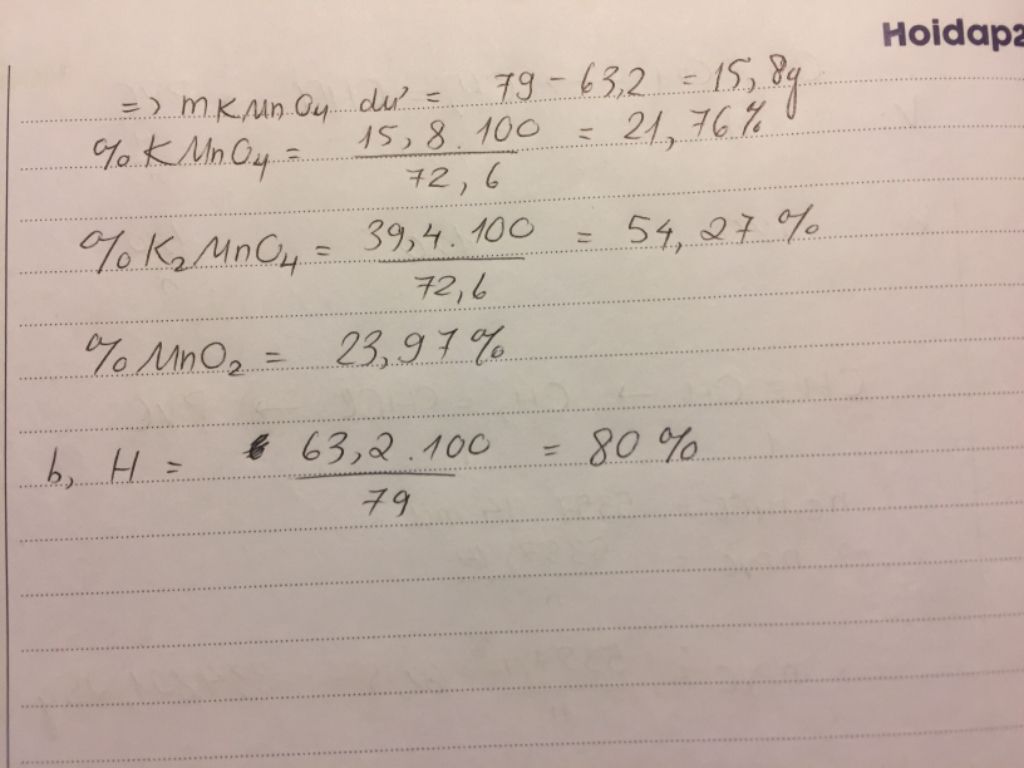 Hoidap2
=> mKMnO4 dư = 79 - 63,2 = 15,8g
%KMnO4 = 15,8.100 / 72,6 = 21,76%
%K2MnO4 = 39,4.100 / 72,6 = 54,27%
%MnO2 = 23,97%
b, H = 63,2.100 / 79 = 80%